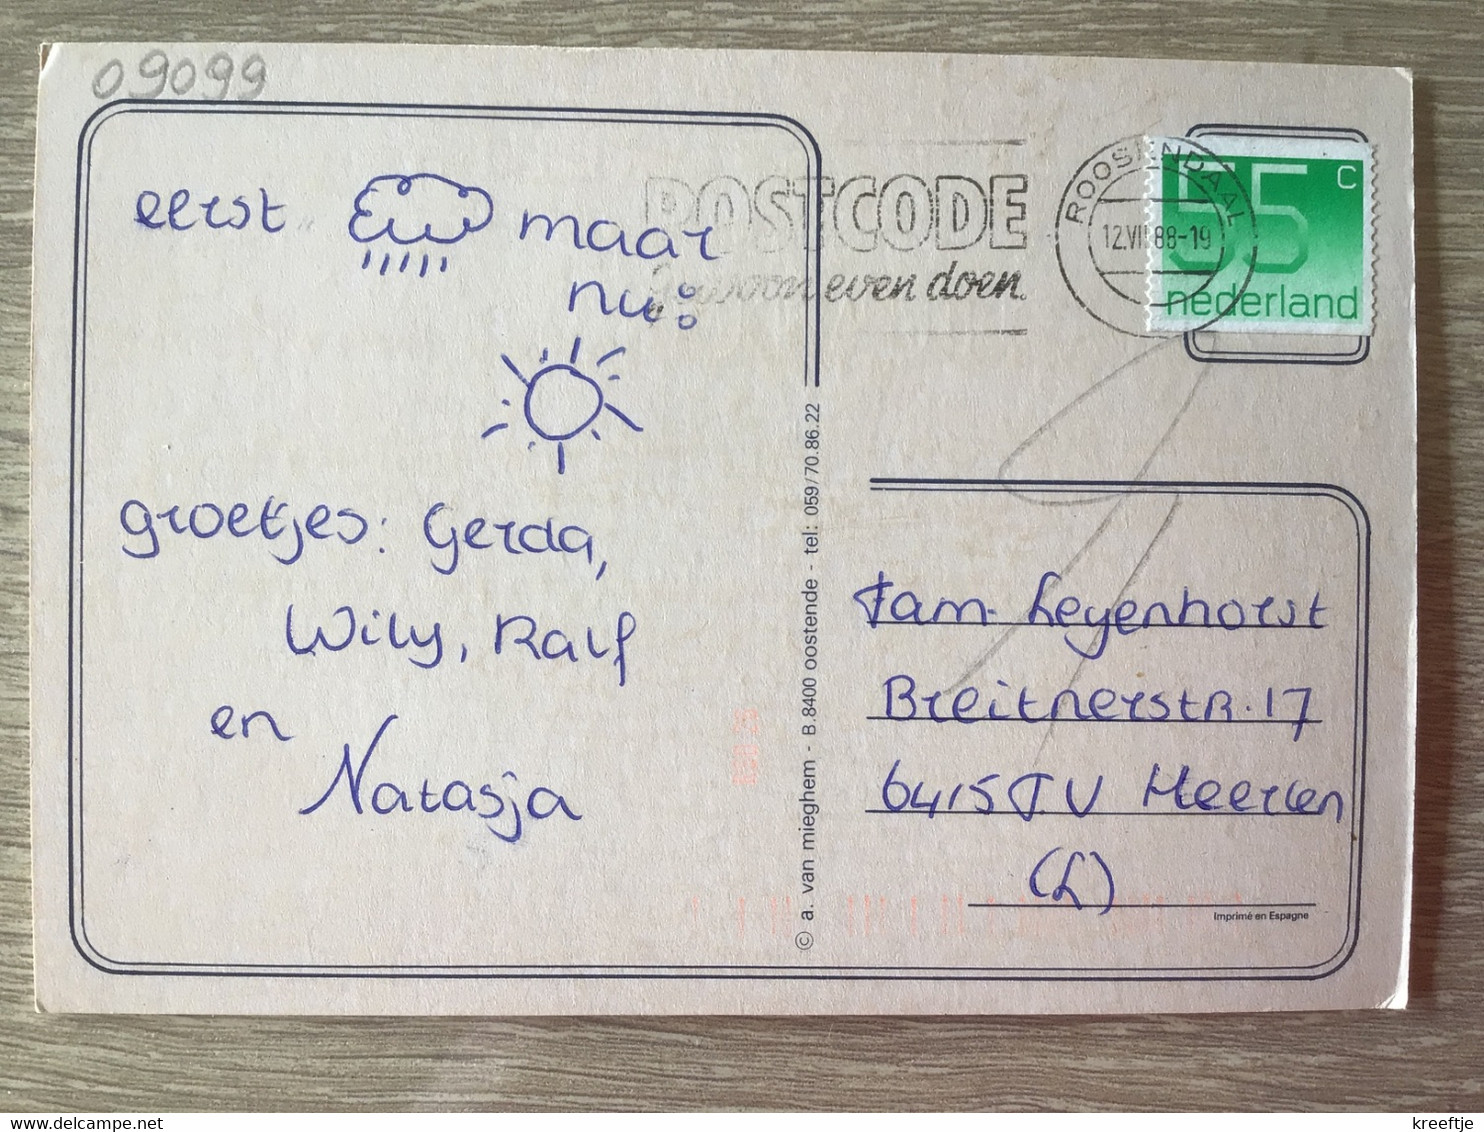 09099
eerst maar
nu:
groetjes: Gerda,
Wily, Ralf
en
Natasja
POSTCODE
gewoon even doen.
ROOSENDAAL
88-19
55 c
nederland
© a. van mieghem - B.8400 oostende - tel: 059/70.86.22
Fam. Leyenhorst
Breitnerstr. 17
6415 T.V Heerlen
(L)
Imprimé en Espagne
kreeftje